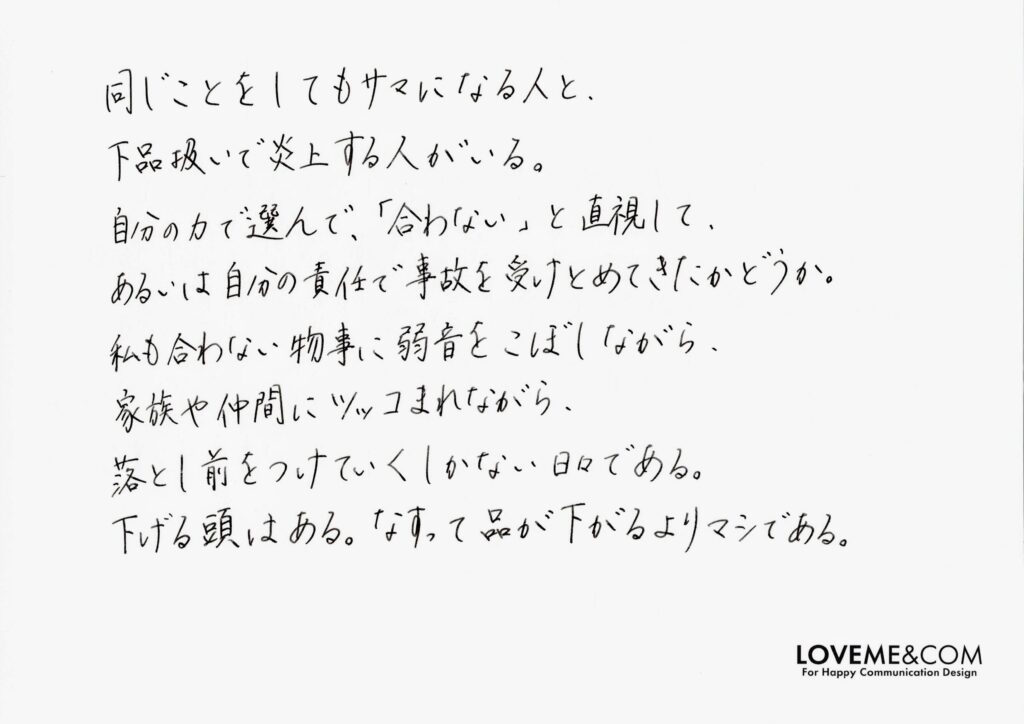 同じことをしてもサマになる人と、
下品扱いで炎上する人がいる。
自分の力で選んで、「合わない」と直視して、
あるいは自分の責任で事故を受けとめてきたかどうか。
私も合わない物事に弱音をこぼしながら、
家族や仲間にツッコまれながら、
落とし前をつけていくしかない日々である。
下げる頭はある。なすって品が下がるよりマシである。
LOVEME&COM
For Happy Communication Design